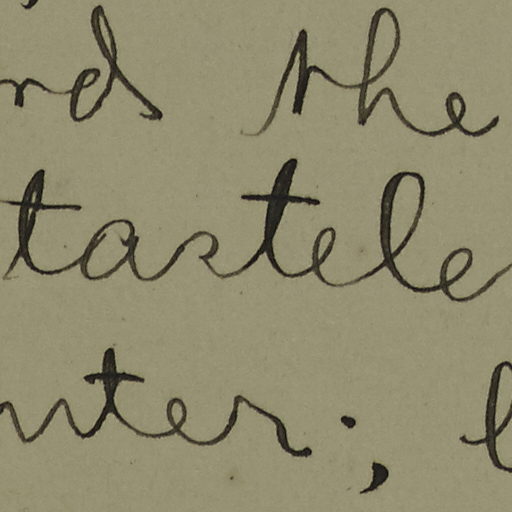 rds the
tastele
nter; l